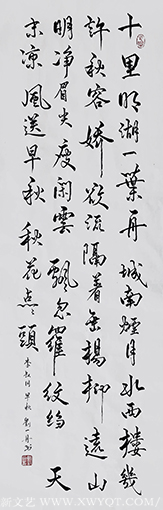 十里明湖一葉舟 城南煙月水西樓 幾
許秋容嬌欲流 隔着垂楊柳 遠山
明净眉尖瘦 閒雲飄忽羅紋縐 天
末凉風送早秋 秋花点々頭
李叔同早秋
新文艺 WWW.XWYQT.COM